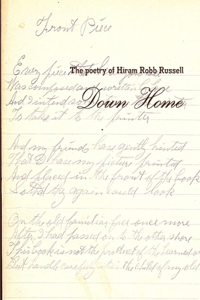 Front Piece
Every piece
The poetry of Hiram Robb Russell
Was composed and written
Down Home
And I intend
To take it to the printer
And my friends have gently hinted
That I have my picture printed
And placed in the front of the book
So that they again could look
On the old familiar face once more
After I had passed on to the other shore
This book is not the product of the learned